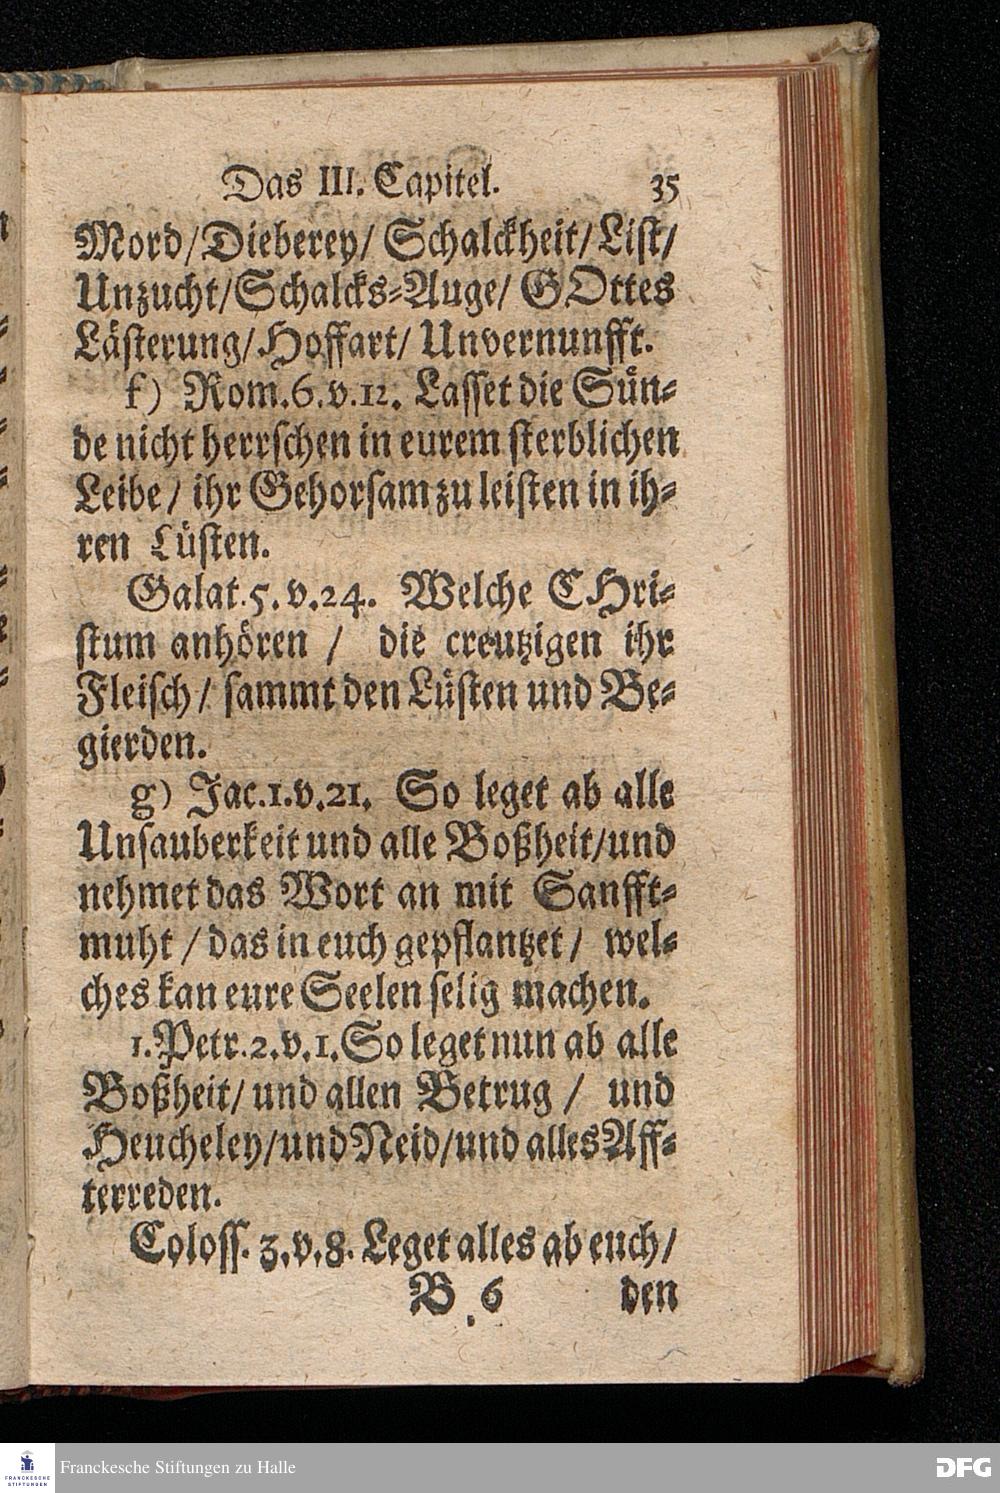 Das III. Capitel. 35
Mord/Dieberey/ Schalckheit/List/
Unzucht/Schalcks-Auge/ GOttes
Lästerung/Hoffart/ Unvernunfft.
f) Rom.6.v.12. Lasset die Sün-
de nicht herrschen in eurem sterblichen
Leibe / ihr Gehorsam zu leisten in ih-
ren Lüsten.
Galat.5.v.24. Welche CHri-
stum anhören / die creutzigen ihr
Fleisch / sammt den Lüsten und Be-
gierden.
g) Jac.1.v.21. So leget ab alle
Unsauberkeit und alle Boßheit/und
nehmet das Wort an mit Sanfft-
muht / das in euch gepflantzet / wel-
ches kan eure Seelen selig machen.
1.Petr.2.v.1.So leget nun ab alle
Boßheit/ und allen Betrug / und
Heucheley/und Neid/und alles Aff-
terreden.
Coloss. 3.v.8. Leget alles ab euch/
B 6 den
FRANCKESCHE
STIFTUNGEN
Franckesche Stiftungen zu Halle
DFG